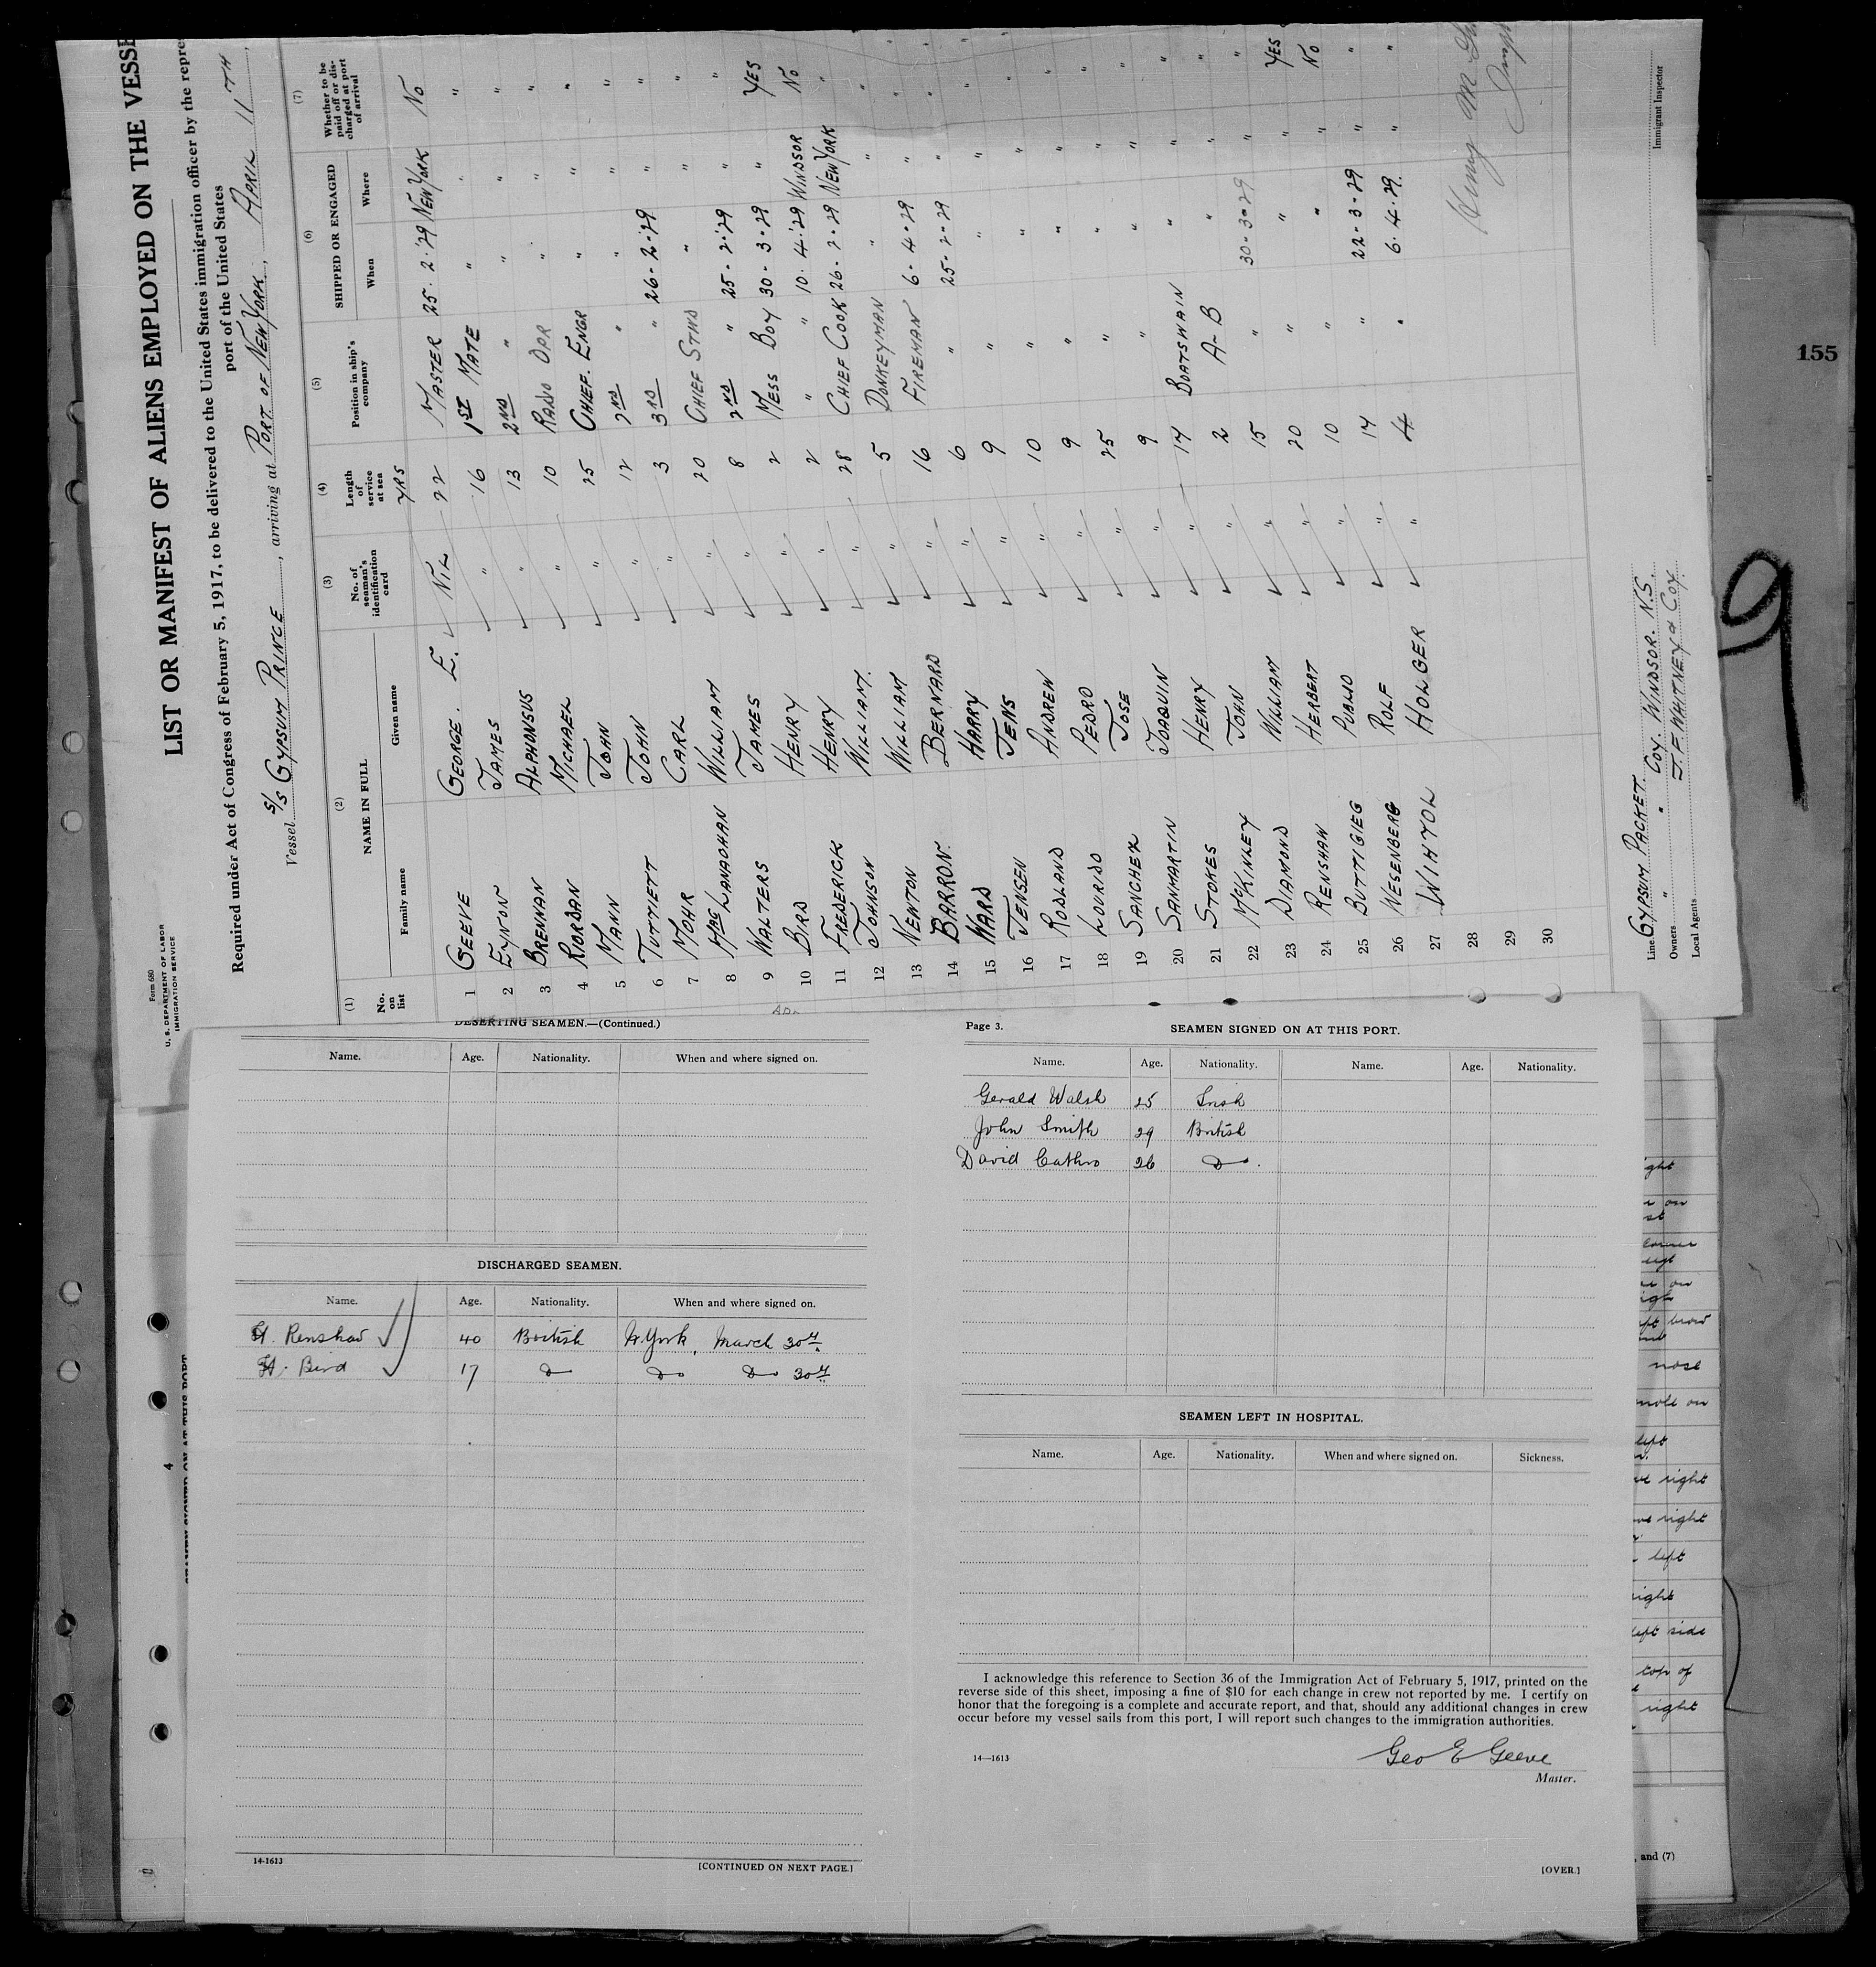 Form 680
U. S. DEPARTMENT OF LABOR
IMMIGRATION SERVICE
LIST OR MANIFEST OF ALIENS EMPLOYED ON THE VESSE
Required under Act of Congress of February 5, 1917, to be delivered to the United States immigration officer by the repre
port of the United States
Vessel S/S GYPSUM PRINCE, arriving at PORT OF NEW YORK, APRIL 11TH,
(1) (2) (3) (4) (5) (6) (7)
No. on list NAME IN FULL Family name Given name No. of seaman's identification card Length of service at sea Position in ship's company SHIPPED OR ENGAGED When Where Whether to be paid off or discharged at port of arrival
YRS
1 GEEVE GEORGE. E. NIL 22 MASTER 25. 2. '29 NEW YORK NO
2 EYNON JAMES " 16 1ST MATE " " "
3 BRENNAN ALPHONSUS " 13 2ND " " " "
4 RIORDAN MICHAEL " 10 RADIO OPR " " "
5 MANN JOHN " 25 CHIEF. ENGR " " "
6 TUTTLETT JOHN " 12 2ND " " " "
7 MOHR CARL " 3 3RD " 26-2-29 " "
8 WILLIAM " 20 CHIEF STWD " " "
9 WALTERS JAMES " 8 2ND " 25-2-29 " "
10 BIRD HENRY " 2 MESS BOY 30-3-29 " YES
11 FREDERICK HENRY " 2 " " 10. 4. '29 WINDSOR NO
12 JOHNSON WILLIAM. " 28 CHIEF COOK 26-2-29 NEW YORK "
13 NEWTON WILLIAM " 5 DONKEYMAN " " "
14 BARRON. BERNARD " 16 FIREMAN 6-4-29 " "
15 WARD HARRY " 6 " 25-2-29 " "
16 JENSEN JENS " 9 " " " "
17 RODLAND ANDREW " 10 " " " "
18 LOURIDO PEDRO " 9 " " " "
19 SANCHEZ JOSE " 25 " " " "
20 SANMARTIN JOAQUIN " 9 " " " "
21 STOKES HENRY " 14 BOATSWAIN " " "
22 McKINLEY JOHN " 2 A-B " " "
23 DIAMOND WILLIAM " 15 " 30-3-29 " "
24 RENSHAW HERBERT " 20 " " " YES
25 BUTTIGIEG PUBLIO " 10 " " " NO
26 WESENBERG ROLF " 14 " 22-3-29 " "
27 WIHTOL HOLGER " 4 " 6.4.29. " "
28
29
30
Line GYPSUM PACKET. COY. WINDSOR. N.S.
Owners " "
Local Agents J. F. WHITNEY & COY.
Immigrant Inspector
155
9
DESERTING SEAMEN.—(Continued.)
Name. Age. Nationality. When and where signed on.
DISCHARGED SEAMEN.
Name. Age. Nationality. When and where signed on.
H. Renshaw 40 British N. York, March 30th
H. Bird 17 Do Do Do 30th
14-1613
[CONTINUED ON NEXT PAGE.]
Page 3.
SEAMEN SIGNED ON AT THIS PORT.
Name. Age. Nationality. Name. Age. Nationality.
Gerald Walsh 25 Irish
John Smith 29 British
David Cathro 26 Do.
SEAMEN LEFT IN HOSPITAL.
Name. Age. Nationality. When and where signed on. Sickness.
I acknowledge this reference to Section 36 of the Immigration Act of February 5, 1917, printed on the
reverse side of this sheet, imposing a fine of $10 for each change in crew not reported by me. I certify on
honor that the foregoing is a complete and accurate report, and that, should any additional changes in crew
occur before my vessel sails from this port, I will report such changes to the immigration authorities.
14—1613
Geo E Geeve
Master.
[OVER.]
4
nose
mole on
left
right
right
left
right
left side
top of
right
, and (7)